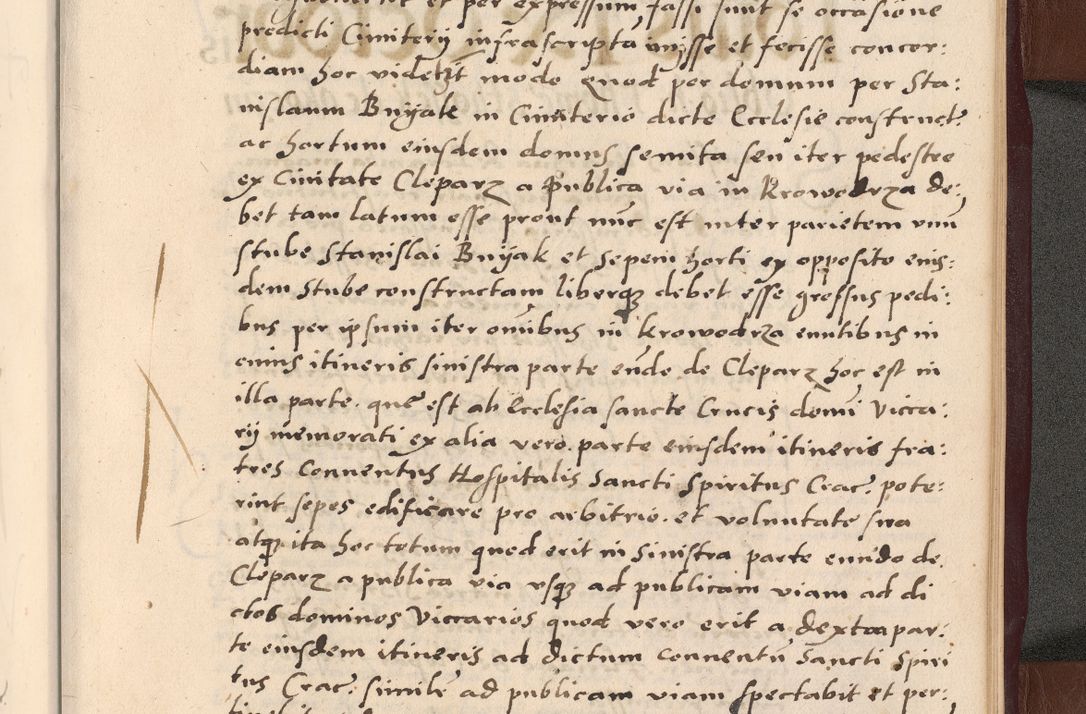 et per expressum fassi sunt se occasione
predicti Cimiterij infrascripta inijsse et fecisse concor:
diam hoc videlzt modo Quod per domum per Sta:
nislaum Buyak in Cimiterio dicte Ecclesie construct?
ac hortum eiusdem domus semita seu iter pedestre
ex Ciuitate Cleparz a publica via in Krowodrza de:
bet tam latum esse prout nūc est inter parietem vnū
stube Stanislai Buyak et sepem horti ex opposito eius:
dem stube constructam liberqz debet esse gressus pedi:
bus per ipsum iter omībus in Krowodrza euntibus in
cuius itineris sinistra parte eūdo de Cleparz hoc est in
illa parte que est ab Ecclesia sancte Crucis domī Vicca:
rij memorati ex alia vero parte eiusdem itineris fra:
tres Conuentus Hospitalis Sancti Spiritus Crac: pote:
rint sepes edificare pro arbitrio et voluntate sua
atqz ita hoc totum quod erit in sinistra parte eundo de
Cleparz a publica via vsqz ad publicam viam ad di
ctos dominos Viccarios quod vero erit a dextra par:
te eiusdem itineris ad dictum conuentū Sancti Spiri
tus Crac: simile ad publicam viam spectabit et per: